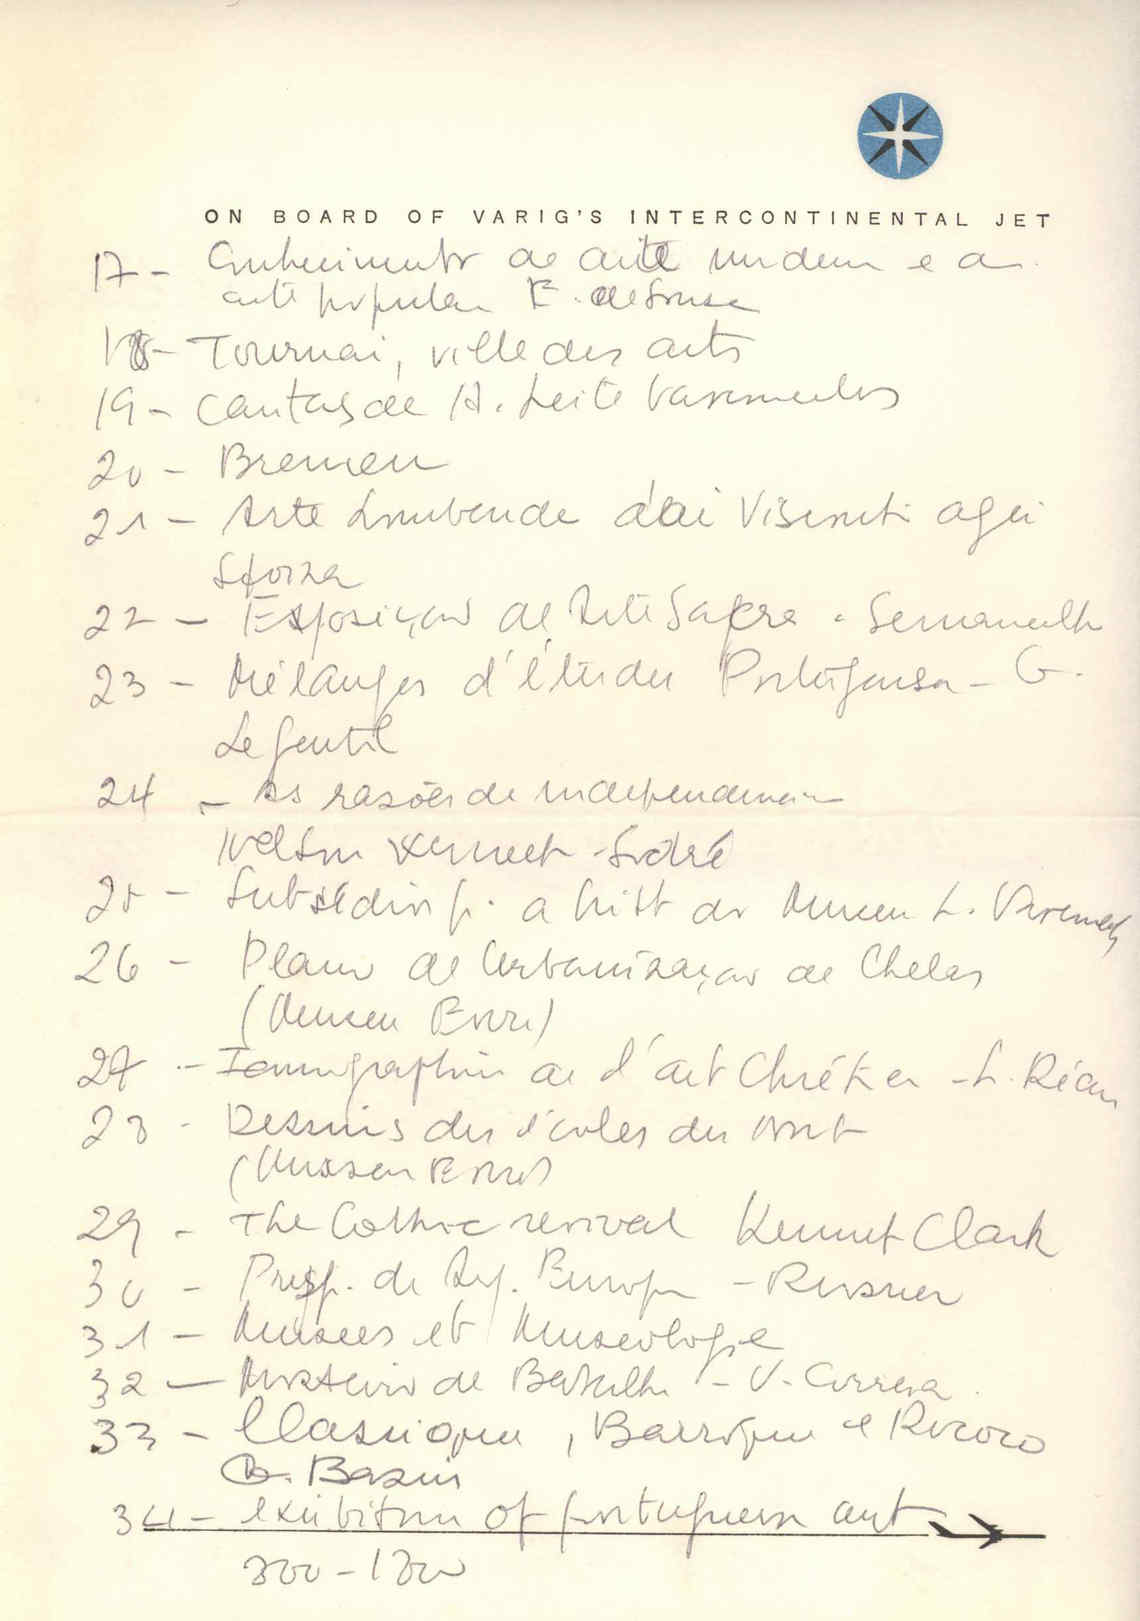 ON BOARD OF VARIG'S INTERCONTINENTAL JET
17 - Conhecimento de arte moderna e a
arte popular E. de Sousa
18 - Tournai, ville des arts
19 - Cartas de A. Leite Vasconcelos
20 - Bremen
21 - Arte Lombarda dai Visconti agli
Sforza
22 - Exposição de Arte Sacra -
23 - Mélanges d'études Portugaises - G.
Le Gentil
24 - As razões de independencia
Nelson Werneck Sodré
25 - Subsídios p. a hist do Museu L. Vasconcelos
26 - Plano de Urbanização de Chelas
(Museu
27 - Iconographie de l'art Chrétien - L. Réau
28 - Dessins des écoles du nord
(Museu
29 - The Gothic revival Kennet Clark
30 - Presp. de Arq. Europa - Pevsner
31 - Musées et Museologie
32 - Mosteiro de Batalha - V. Correia
33 - Classique, Baroque e Rococo
G. Bazin
34 - exibition of portuguese art
800 - 1800